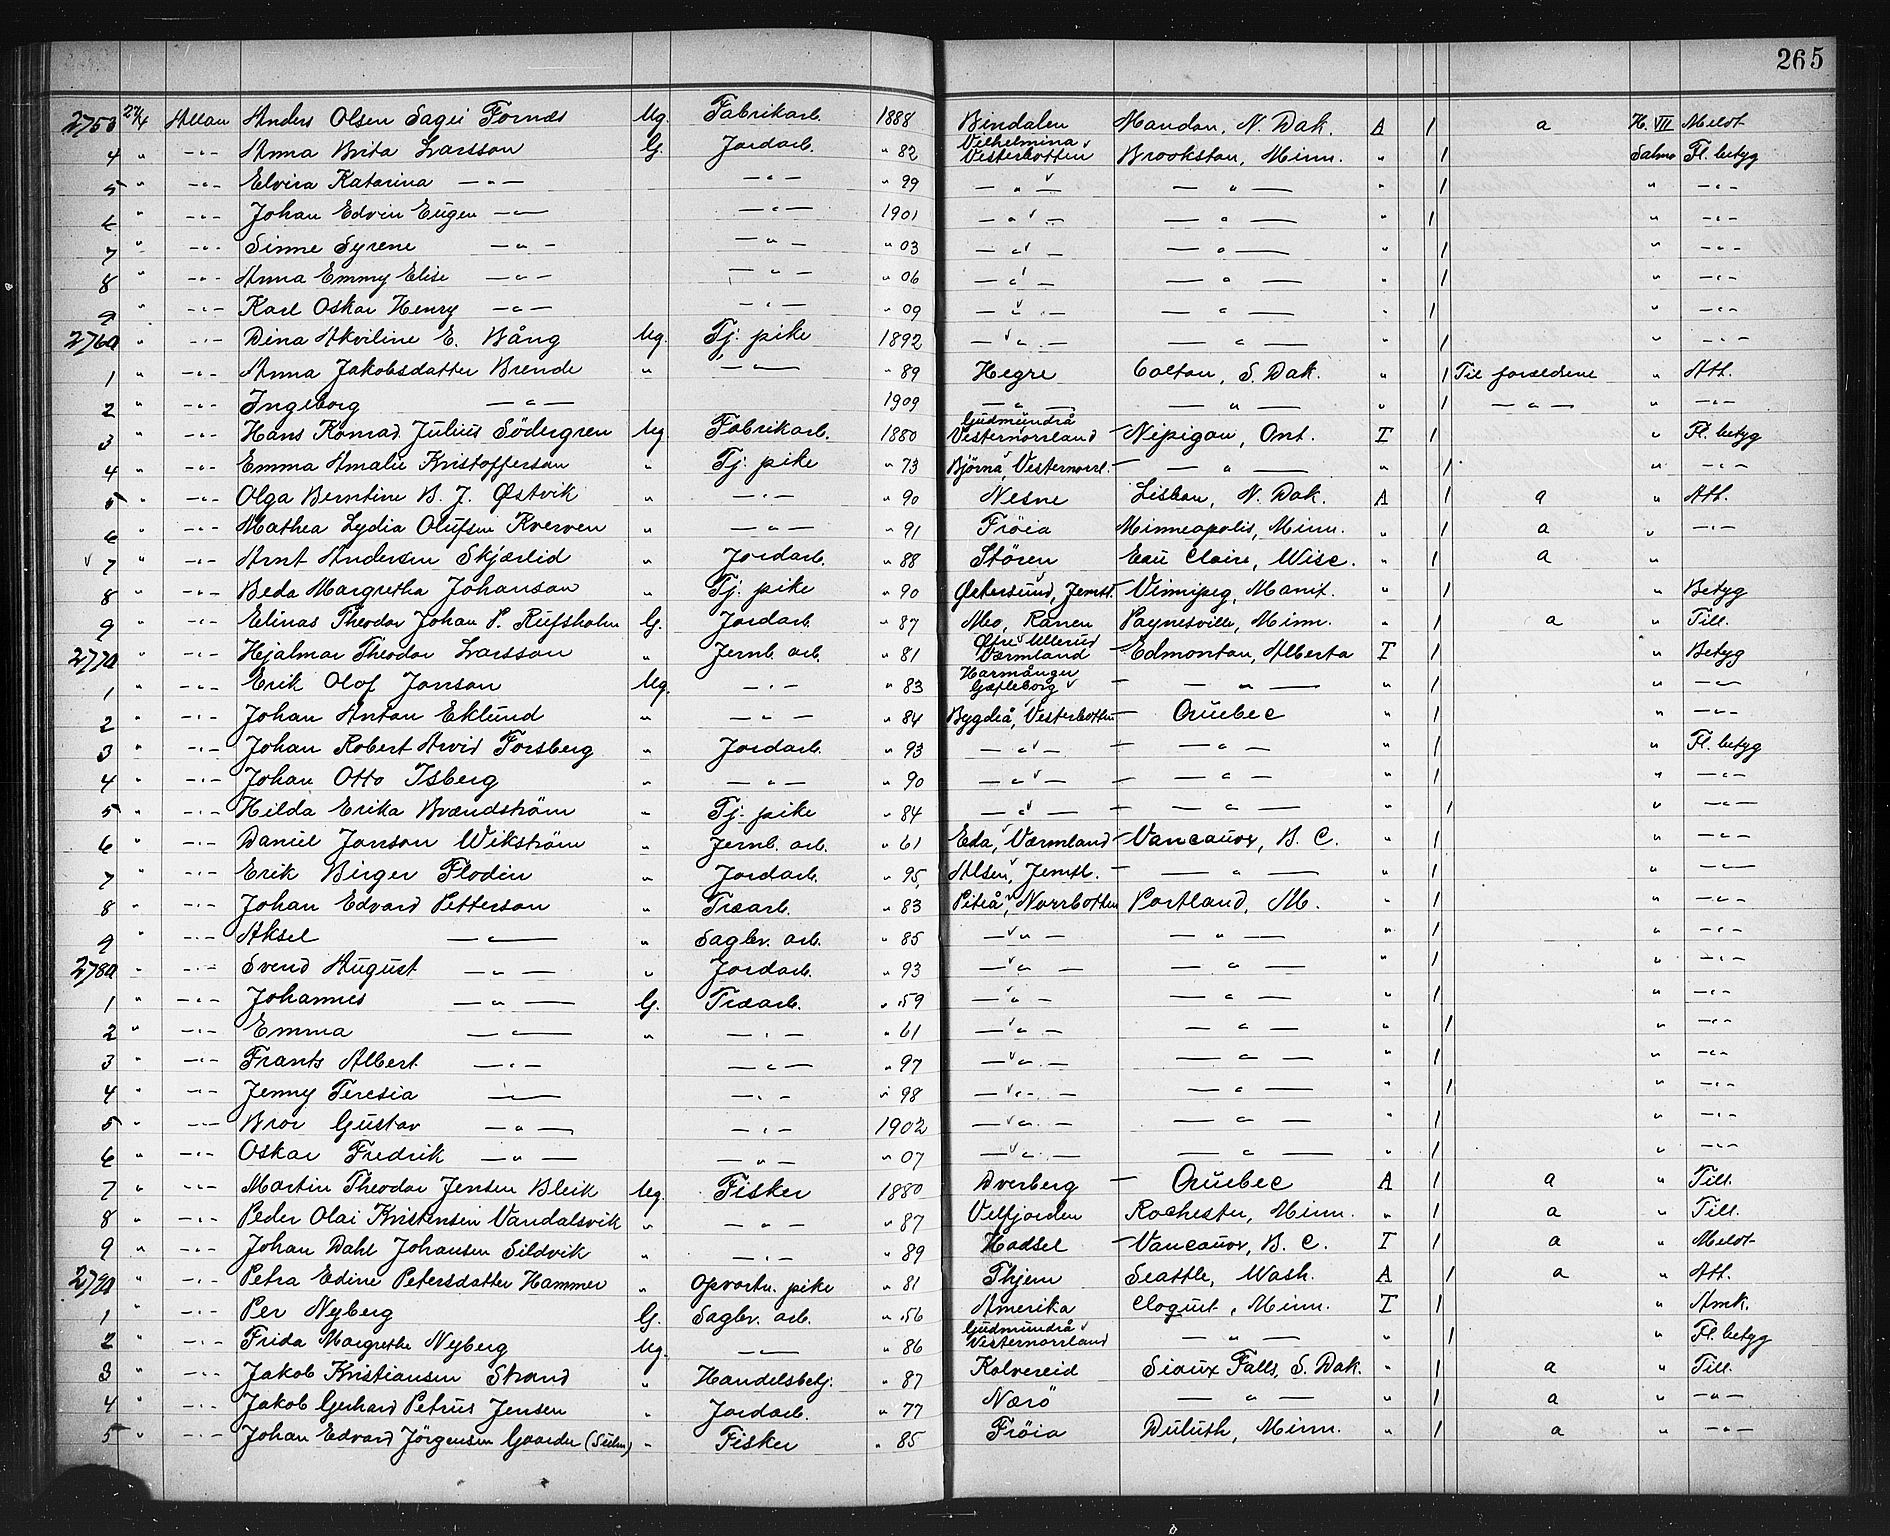 265
2753 27/4 Allan Anders Olsen Sagei Fornes Ug. Fabrikarb. 1888 Bindalen Mandan, N. Dak. A 1 a H. VII Meldt
4 " -"- Anna Brita Larsson G. Jordarb. " 82 Vilhelmina Vesterbotten Brookston, Minn. " 1 Salmo Fl. betyg
5 " -"- Elvira Katarina -"- -"- " 99 -"- -"- " 1 " -"-
6 " -"- Johan Edvin Eugen -"- -"- 1901 -"- -"- " 1 " -"-
7 " -"- Sinne Syrene -"- -"- " 03 -"- -"- " 1 " -"-
8 " -"- Anna Emmy Elise -"- -"- " 06 -"- -"- " 1 " -"-
9 " -"- Karl Oskar Henry -"- -"- " 09 -"- -"- " 1 " -"-
2760 " -"- Dina Akviline E. Bång Ug. Tj. pike 1892 -"- -"- " 1 " -"-
1 " -"- Anna Jakobsdatter Brende " -"- " 89 Hegre Colton, S. Dak. " 1 Til forældrene " Att.
2 " -"- Ingeborg -"- 1909 -"- -"- " 1 -"- " -"-
3 " -"- Hans Konrad Julius Södergren Ug. Fabrikarb. 1880 Gudmundrå Vesternorrland Nipigon, Ont. T 1 " Fl. betyg
4 " -"- Emma Amalie Kristofferson " Tj. pike " 73 Björna, Vesternorrl. -"- " 1 " -"-
5 " -"- Olga Berntine B. J. Østvik " -"- " 90 Nesne Lisbon, N. Dak. A 1 a " Att.
6 " -"- Mathea Lydia Olufsen Kverven " -"- " 91 Fröia Minneapolis, Minn. " 1 a " -"-
7 " -"- Arnt Andersen Skjærlid " Jordarb. " 88 Stören Eau Claire, Wisc. " 1 a "
8 " -"- Beda Margretha Johanson " Tj. pike " 90 Østersund, Jemtl. Vinnipeg, Manit. " 1 " Betyg
9 " -"- Elinas Theodor Johan P. Reifsholm G. Jordarb. " 87 Mo, Ranen Paynesville, Minn. " 1 a " Till.
2770 " -"- Hjalmar Theodor Larsson " Jernb. arb. " 81 Øfre Ullerud Værmland Edmonton, Alberta T 1 " Betyg
1 " -"- Erik Olof Jonson Ug. -"- " 83 Harmånger Gæfleborg -"- " 1 " -"-
2 " -"- Johan Anton Eklund " -"- " 84 Bygdeå, Vesterbotten Quebec " 1 " -"-
3 " -"- Johan Robert Arvid Forsberg " Jordarb. " 93 -"- -"- " 1 " Fl. betyg
4 " -"- Johan Otto Isberg " -"- " 90 -"- -"- " 1 " -"-
5 " -"- Hilda Erika Brændström " Tj. pike " 84 -"- -"- " 1 " -"-
6 " -"- Daniel Jonson Wikström " Jernb. arb. " 61 Eda, Værmland Vancauver, B. C. " 1 " -"-
7 " -"- Erik Birger Flodin " Jordarb. " 95 Alsen, Jemtl. -"- " 1 " -"-
8 " -"- Johan Edvard Petterson " Træarb. " 83 Piteå, Norrbotten Portland, M. " 1 " -"-
9 " -"- Aksel -"- " Sagbr. arb. " 85 -"- -"- " 1 " -"-
2780 " -"- Svend August -"- " Jordarb. " 93 -"- -"- " 1 " -"-
1 " -"- Johannes -"- G. Træarb. " 59 -"- -"- " 1 " -"-
2 " -"- Emma -"- " -"- " 61 -"- -"- " 1 " -"-
3 " -"- Frants Albert -"- -"- " 97 -"- -"- " 1 " -"-
4 " -"- Jenny Teresia -"- -"- " 98 -"- -"- " 1 " -"-
5 " -"- Bror Gustav -"- -"- 1902 -"- -"- " 1 " -"-
6 " -"- Oskar Fredrik -"- -"- " 07 -"- -"- " 1 " -"-
7 " -"- Martin Theodor Jensen Bleik Ug. Fisker 1880 Dverberg Quebec A 1 a " Till.
8 " -"- Peder Olai Kristensen Vandalsvik " -"- " 87 Velfjorden Rochester, Minn. " 1 a " Till.
9 " -"- Johan Dahl Johansen Sildvik " -"- " 89 Hadsel Vancauver, B. C. T 1 a " Meldt
2790 " -"- Petra Edine Petersdatter Hammer " Opvartn. pike " 81 Thjem Seattle, Wash. A 1 a " Att.
1 " -"- Per Nyberg G. Sagbr. arb. " 56 Amerika Cloquet, Minn. T 1 " Amk.
2 " -"- Frida Margrethe Nyberg Ug. -"- " 86 Gudmundrå Vesternorrland -"- " 1 " Fl. betyg
3 " -"- Jakob Kristiansen Strand " Handelsbetj. " 87 Kolvereid Sioux Falls, S. Dak. " 1 a " Till.
4 " -"- Jakob Gerhard Petrus Jensen " Jordarb. " 77 Nærö -"- " 1 a " -"-
5 " -"- Johan Edvard Jörgensen Gaarder " Fisker " 85 Fröia Duluth, Minn. " 1 a " -"-